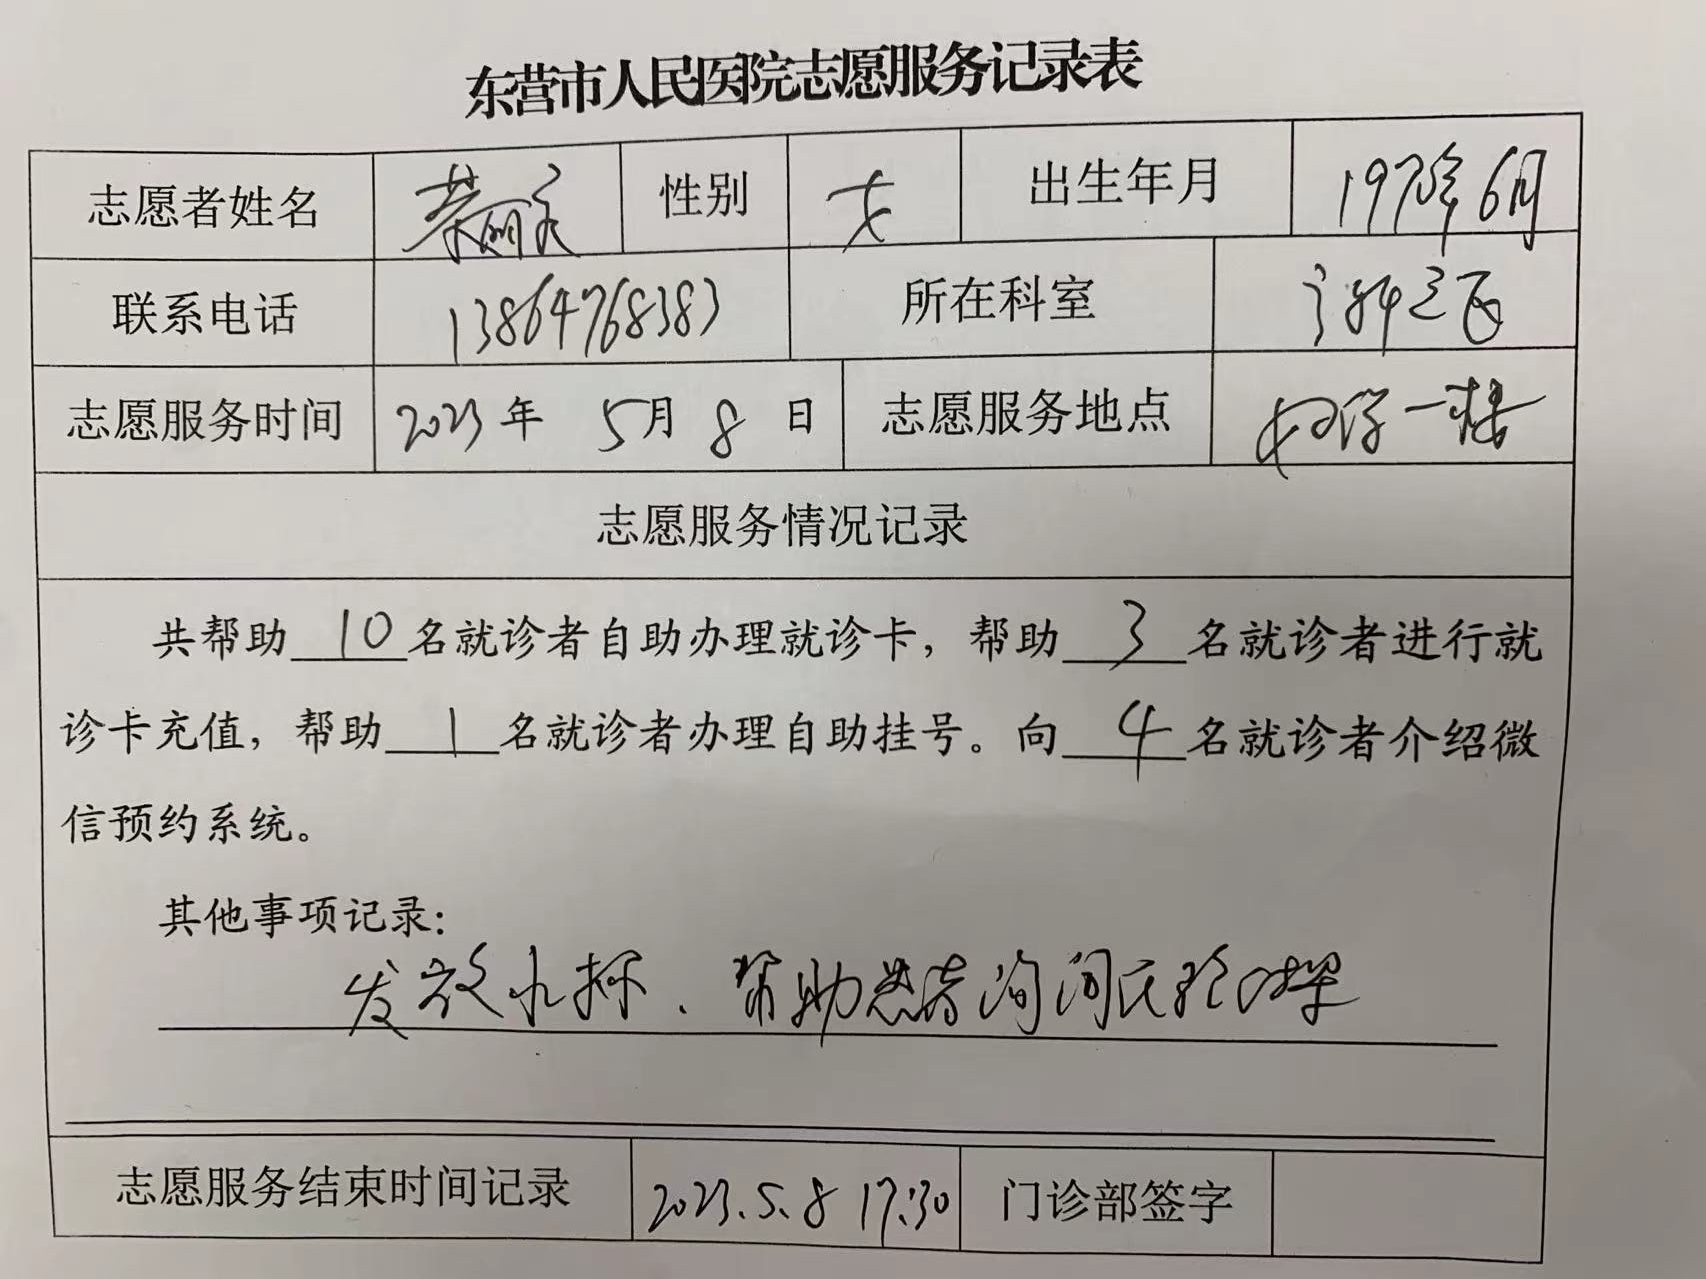 东营市人民医院志愿服务记录表
志愿者姓名 荣丽 性别 女 出生年月 1970年6月
联系电话 13864768383 所在科室
志愿服务时间 2023年 5月 8 日 志愿服务地点 一楼
志愿服务情况记录
共帮助 10 名就诊者自助办理就诊卡，帮助 3 名就诊者进行就
诊卡充值，帮助 1 名就诊者办理自助挂号。向 4 名就诊者介绍微
信预约系统。
其他事项记录：
发放水杯、帮助患者询问
志愿服务结束时间记录 2023.5.8 17:30 门诊部签字